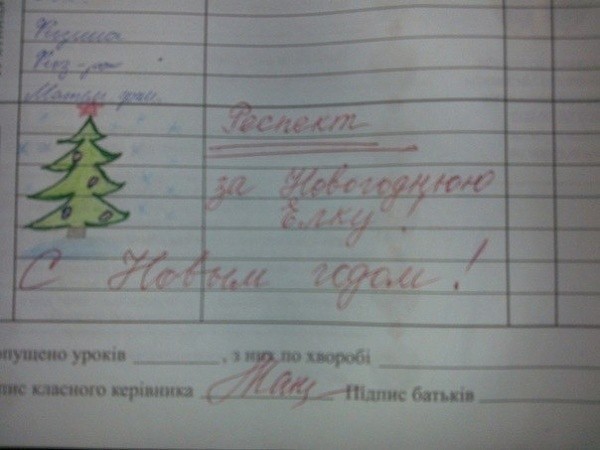 Физика
Физ-ра
Респект
за Новогоднюю
Ёлку!
С Новым годом!
опущено уроків ________ , з них по хворобі
пис класного керівника ________ Підпис батьків